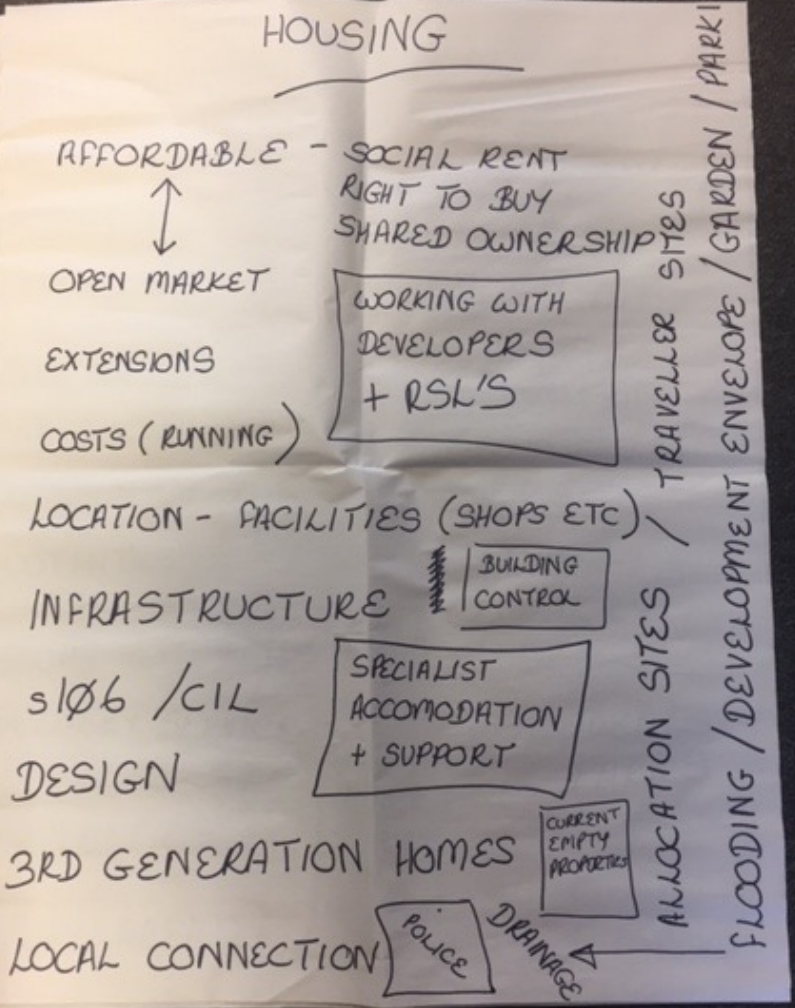 HOUSING
AFFORDABLE - SOCIAL RENT
RIGHT TO BUY
SHARED OWNERSHIP
OPEN MARKET
WORKING WITH
DEVELOPERS
+ RSL'S
EXTENSIONS
COSTS (RUNNING)
LOCATION - FACILITIES (SHOPS ETC)
INFRASTRUCTURE
BUILDING
CONTROL
s106 / CIL
SPECIALIST
ACCOMODATION
+ SUPPORT
DESIGN
3RD GENERATION HOMES
CURRENT
EMPTY
PROPERTIES
LOCAL CONNECTION
POLICE
DRAINAGE
ALLOCATION SITES / TRAVELLER SITES
FLOODING / DEVELOPMENT ENVELOPE / GARDEN / PARKI